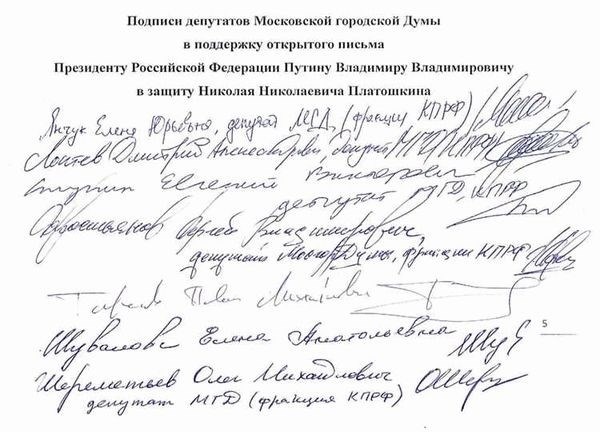 Подписи депутатов Московской городской Думы
в поддержку открытого письма
Президенту Российской Федерации Путину Владимиру Владимировичу
в защиту Николая Николаевича Платошкина
Янчук Елена Юрьевна, депутат МГД, (фракции КПРФ)
Локтев Дмитрий Александрович, депутат МГД КПРФ
Ступин Евгений Викторович
депутат МГД, КПРФ
Савостьянов Сергей Владимирович,
депутат МосгорДумы, фракции КПРФ
Тарасов Павел Михайлович
5
Шувалова Елена Анатольевна
Шереметьев Олег Михайлович
депутат МГД (фракция КПРФ)